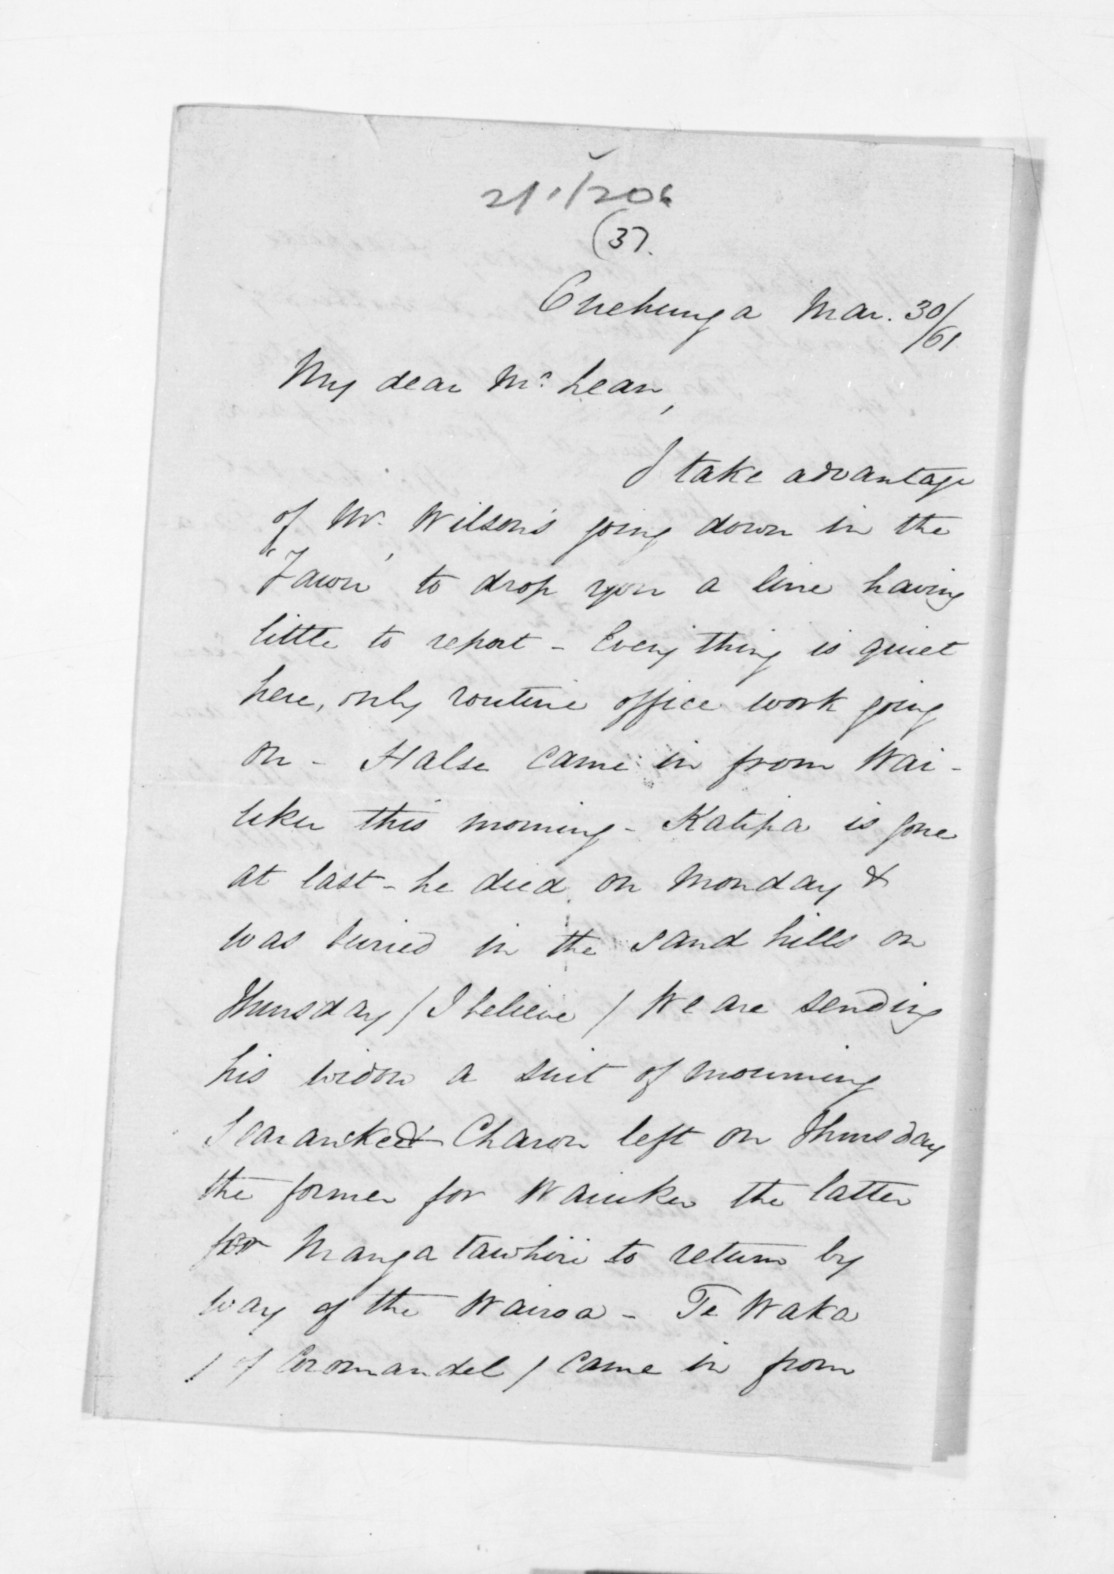 21/1/206
(37.
Onehunga Mar. 30/61
My dear Mc Lean,
I take advantage
of Mr. Wilson's going down in the
'Fawn' to drop you a line having
little to report - Every thing is quiet
here, only routine office work going
on - Halse came in from Wai-
uku this morning - Katipa is gone
at last - he died on Monday &
was buried in the sand hills on
Thursday / I believe / We are sending
his widow a suit of mourning
Searancke & Charon left on Thursday
the former for Waiuku the latter
for Mangatawhiri to return by
way of the Wairoa - Te Waka
/ of Coromandel / came in from